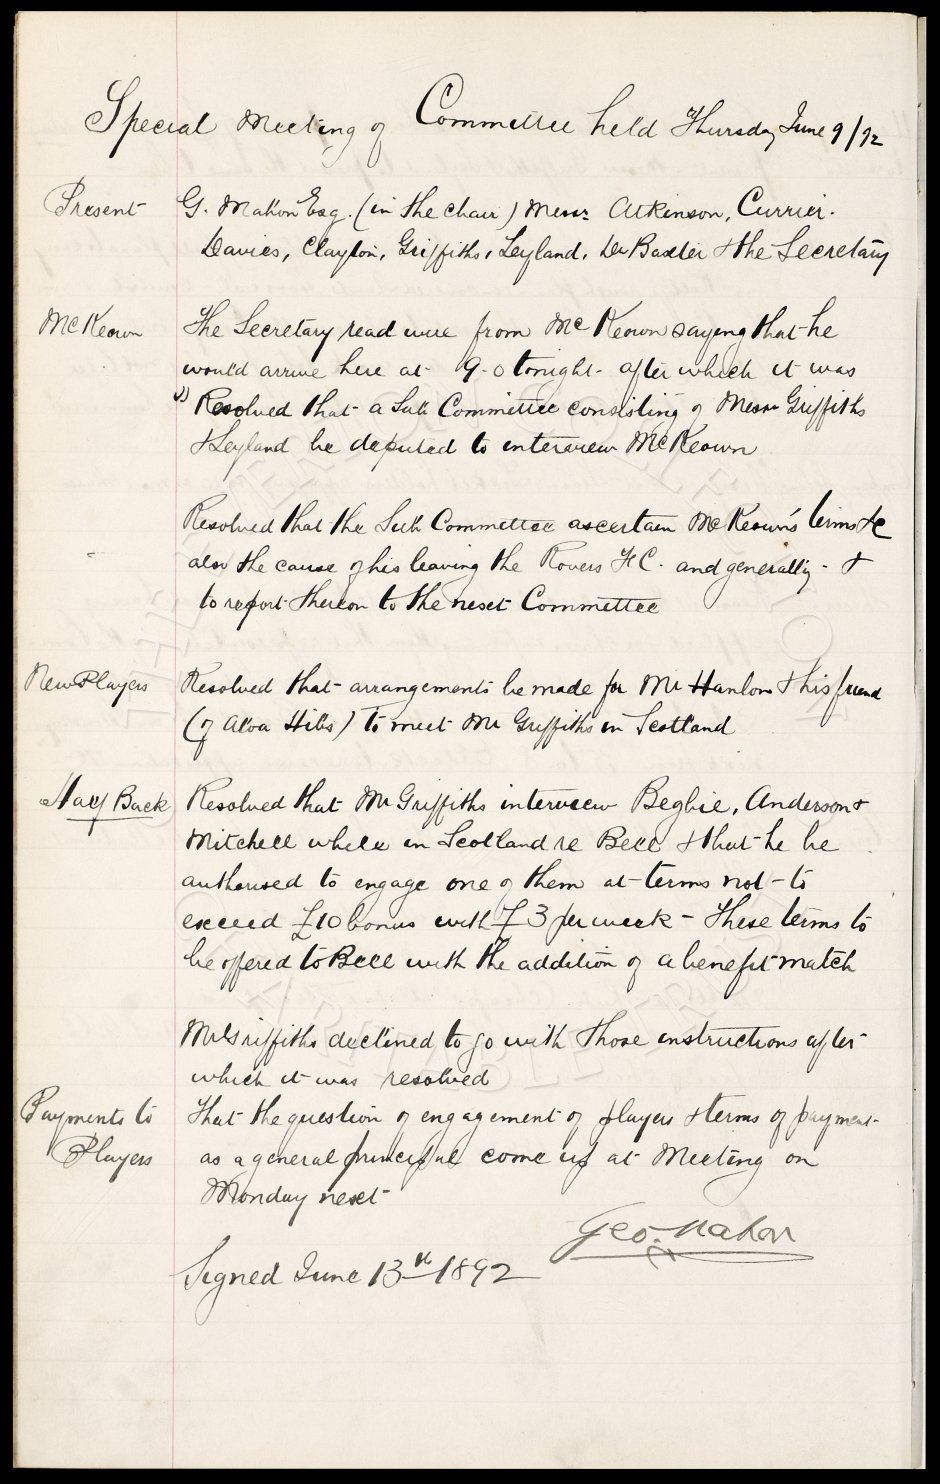 Special Meeting of Committee held Thursday June 9/92
Present G. Mahon Esq. (in the chair) Messrs Atkinson, Currier.
Davies, Clayton, Griffiths, Leyland, Dr Baxter & the Secretary
McKeown The Secretary read wire from McKeown saying that he
would arrive here at 9-0 tonight - after which it was
Resolved that a Sub Committee consisting of Messrs Griffiths
& Leyland be deputed to interview McKeown
Resolved that the Sub Committee ascertain McKeown's terms &c
also the cause of his leaving the Rovers F.C. and generally - &
to report thereon to the next Committee
New Players Resolved that arrangements be made for Mr Hanlon & his friend
(of Alva Hibs) to meet Mr Griffiths in Scotland
Half Back Resolved that Mr Griffiths interview Begbie, Anderson &
Mitchell while in Scotland re Bell & that he be
authorised to engage one of them at terms not to
exceed £10 bonus with £3 per week - These terms to
be offered to Bell with the addition of a benefit match
Mr Griffiths declined to go with those instructions after
which it was resolved
Payments to That the question of engagement of players & terms of payment
Players as a general principal come up at Meeting on
Monday next
Geo. Mahon
Signed June 13th 1892